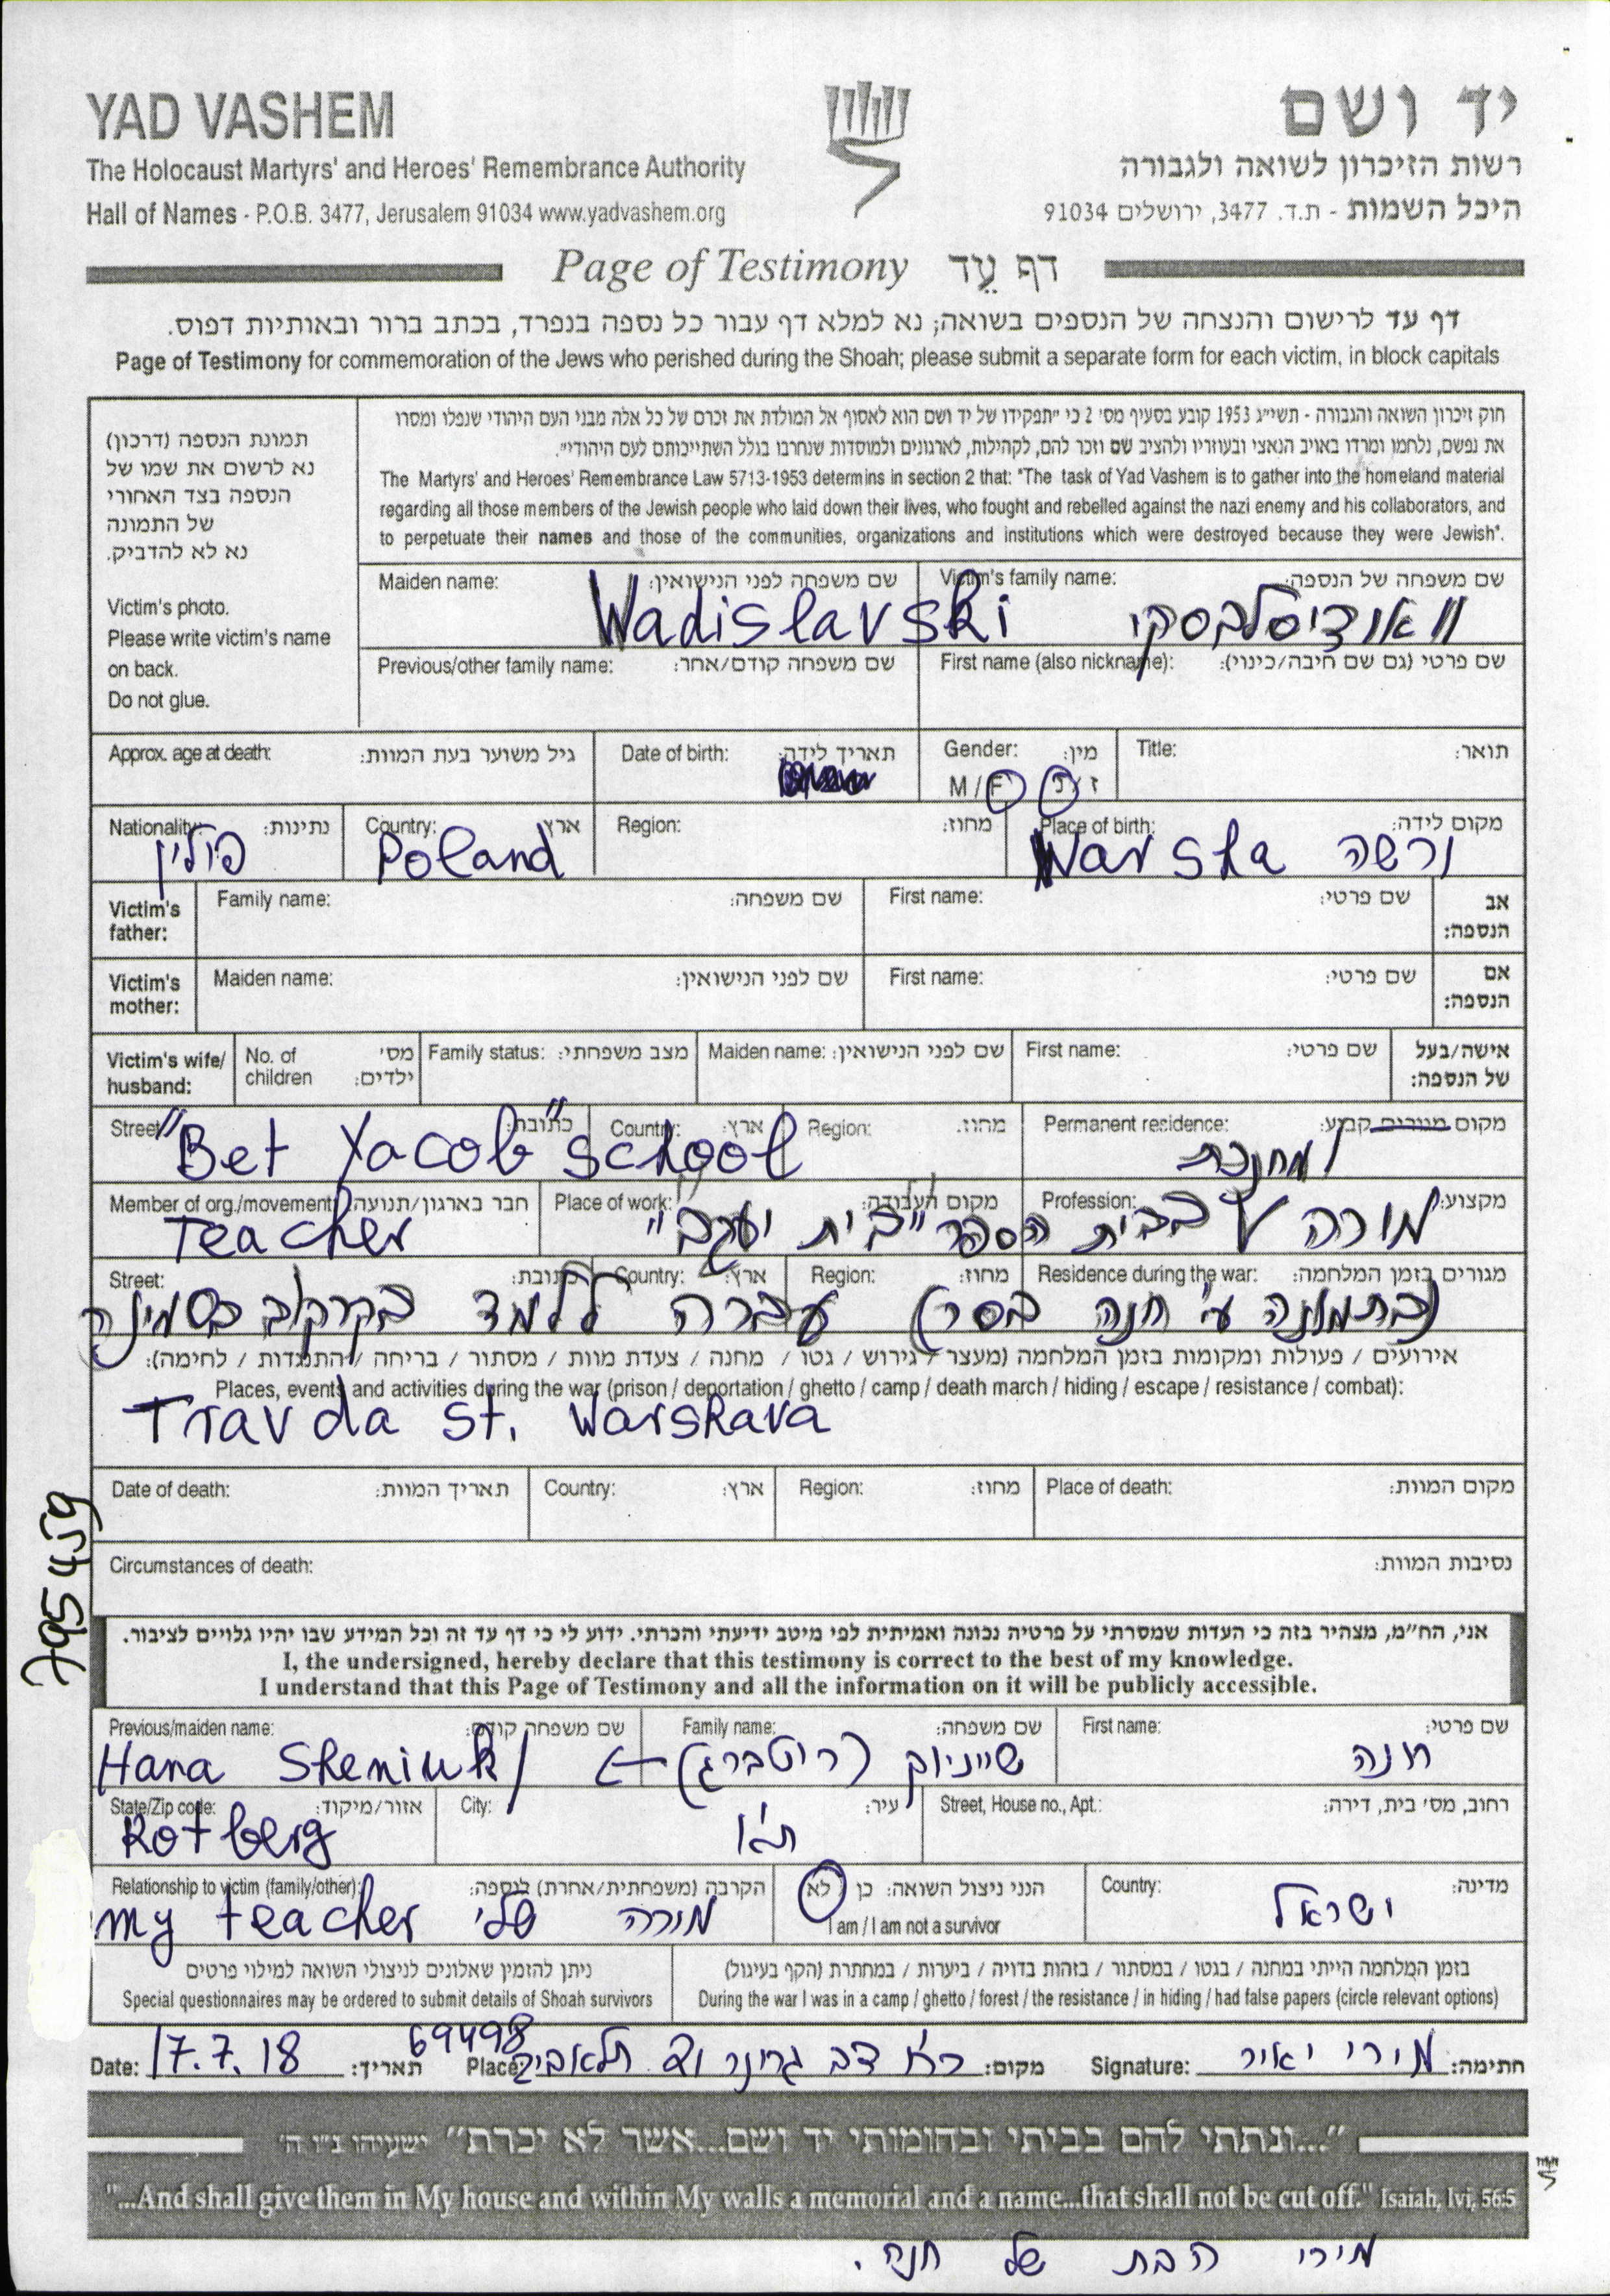 YAD VASHEM
יד ושם
The Holocaust Martyrs' and Heroes' Remembrance Authority
רשות הזיכרון לשואה ולגבורה
Hall of Names - P.O.B. 3477, Jerusalem 91034 www.yadvashem.org
היכל השמות - ת.ד. 3477, ירושלים 91034
Page of Testimony דף עֵד
דף עד לרישום והנצחה של הנספים בשואה; נא למלא דף עבור כל נספה בנפרד, בכתב ברור ובאותיות דפוס.
Page of Testimony for commemoration of the Jews who perished during the Shoah; please submit a separate form for each victim, in block capitals
תמונת הנספה (דרכון)
נא לרשום את שמו של
הנספה בצד האחורי
של התמונה
נא לא להדביק.
Victim's photo.
Please write victim's name
on back.
Do not glue.
חוק זיכרון השואה והגבורה - תשי"ג 1953 קובע בסעיף מס' 2 כי "תפקידו של יד ושם הוא לאסוף אל המולדת את זכרם של כל אלה מבני העם היהודי שנפלו ומסרו
את נפשם, נלחמו ומרדו באויב הנאצי ובעוזריו ולהציב שם וזכר להם, לקהילות, לארגונים ולמוסדות שנחרבו בגלל השתייכותם לעם היהודי".
The Martyrs' and Heroes' Remembrance Law 5713-1953 determins in section 2 that: "The task of Yad Vashem is to gather into the homeland material
regarding all those members of the Jewish people who laid down their lives, who fought and rebelled against the nazi enemy and his collaborators, and
to perpetuate their names and those of the communities, organizations and institutions which were destroyed because they were Jewish".
Maiden name: שם משפחה לפני הנישואין: Victim's family name: שם משפחה של הנספה:
Wadislavski וואנדיסלבסקי
Previous/other family name: שם משפחה קודם/אחר: First name (also nickname): שם פרטי (גם שם חיבה/כינוי):
Approx. age at death: גיל משוער בעת המוות: Date of birth: תאריך לידה: Gender: מין: Title: תואר:
M / F ז / נ
Nationality: נתינות: Country: ארץ Region: מחוז: Place of birth: מקום לידה:
פולין Poland Warsha ורשה
Victim's father: Family name: שם משפחה: First name: שם פרטי: אב הנספה:
Victim's mother: Maiden name: שם לפני הנישואין: First name: שם פרטי: אם הנספה:
Victim's wife/ husband: No. of children מס' ילדים: Family status: מצב משפחתי: Maiden name: שם לפני הנישואין: First name: שם פרטי: אישה/בעל של הנספה:
Street: כתובת: Country: ארץ: Region: מחוז: Permanent residence: מקום מגורים קבוע:
"Bet Yacob" school מחנכת
Member of org./movement: חבר בארגון/תנועה: Place of work: מקום העבודה: Profession: מקצוע:
Teacher מורה בבית הספר "בית יעקב"
Street: כתובת: Country: ארץ: Region: מחוז: Residence during the war: מגורים בזמן המלחמה:
(בתמונה עי' חנה בסר) עברה ללמד בקרקוב בסמינה
אירועים / פעולות ומקומות בזמן המלחמה (מעצר / גירוש / גטו / מחנה / צעדת מוות / מסתור / בריחה / התנגדות / לחימה):
Places, events and activities during the war (prison / deportation / ghetto / camp / death march / hiding / escape / resistance / combat):
Travda st. Warskava
Date of death: תאריך המוות: Country: ארץ: Region: מחוז: Place of death: מקום המוות:
Circumstances of death: נסיבות המוות:
795459
אני, הח"מ, מצהיר בזה כי העדות שמסרתי על פרטיה נכונה ואמיתית לפי מיטב ידיעתי והכרתי. ידוע לי כי דף עד זה וכל המידע שבו יהיו גלויים לציבור.
I, the undersigned, hereby declare that this testimony is correct to the best of my knowledge.
I understand that this Page of Testimony and all the information on it will be publicly accessible.
Previous/maiden name: שם משפחה קודם: Family name: שם משפחה: First name: שם פרטי:
Hana Sheniuk / שייניוק (רוטברג) חנה
State/Zip code: אזור/מיקוד: City: עיר: Street, House no., Apt.: רחוב, מס' בית, דירה:
Rotberg ת"א
Relationship to victim (family/other): הקרבה (משפחתית/אחרת) לנספה: הנני ניצול השואה: כן / לא Country: מדינה:
my teacher מורה שלי I am / I am not a survivor ישראל
ניתן להזמין שאלונים לניצולי השואה למילוי פרטים
Special questionnaires may be ordered to submit details of Shoah survivors
בזמן המלחמה הייתי במחנה / בגטו / במסתור / בזהות בדויה / ביערות / במחתרת (הקף בעיגול)
During the war I was in a camp / ghetto / forest / the resistance / in hiding / had false papers (circle relevant options)
69498
Date: 17.7.18 תאריך: Place: רח' דב גרונר תל אביב מקום: Signature: מירי יאיר חתימה:
"...ונתתי להם בביתי ובחומותי יד ושם...אשר לא יכרת" ישעיהו נ"ו ה'
"...And shall give them in My house and within My walls a memorial and a name...that shall not be cut off." Isaiah, lvi, 56:5
מירי הבת של חנה.